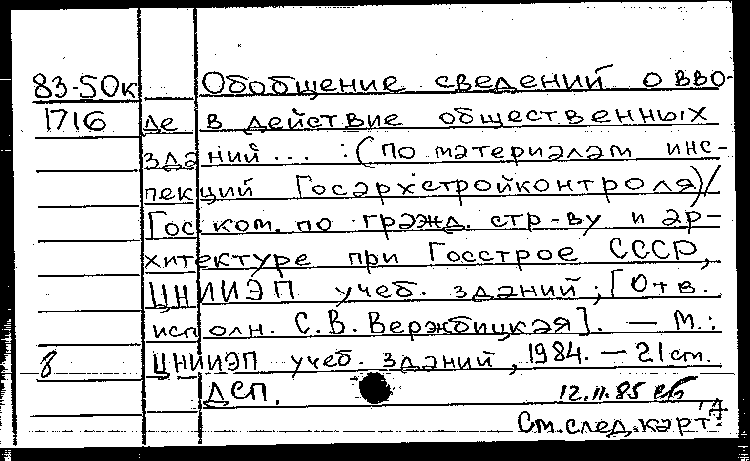 83-50к Обобщение сведений о вво-
1716 де в действие общественных
зданий... : (По материалам инс-
пекций Госархстройконтроля)/
Гос. ком. по гражд. стр-ву и ар-
хитектуре при Госстрое СССР,
ЦНИИЭП учеб. зданий; [Отв.
исполн. С.В. Вержбицкая]. — М.:
8 ЦНИИЭП учеб. зданий, 1984. — 21 ст.
ДСП. 12.11.85
См. след. карт.